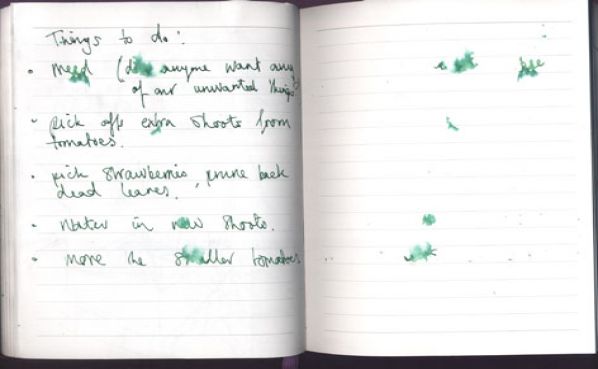 Things to do:
• need (does anyone want any
of our unwanted things
• pick off extra shoots from
tomatoes.
• pick strawberries, prune back
dead leaves.
• water in new shoots.
• move the smaller tomatoes